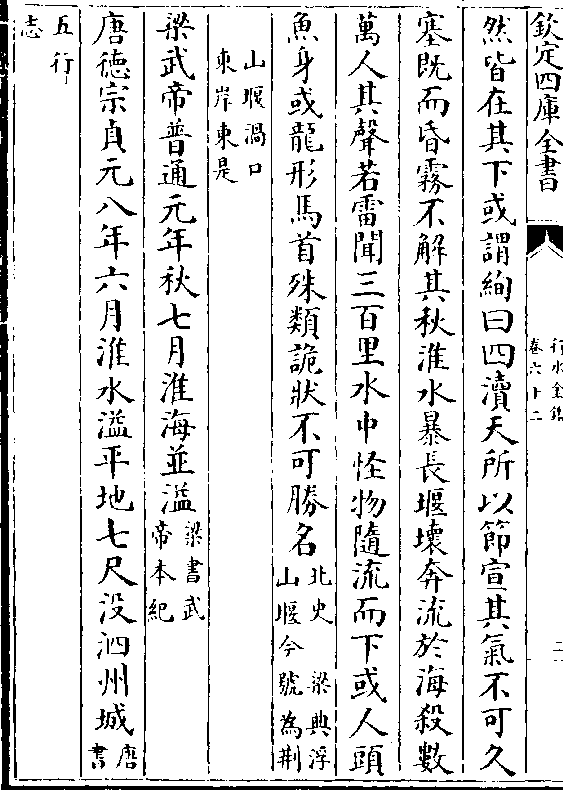 欽定四庫全書
行水金鑑
卷六十二
二
然皆在其下或謂絢曰四瀆天所以節宣其氣不可久
塞既而昏霧不解其秋淮水暴長堰壞奔流於海殺數
萬人其聲若雷聞三百里水中怪物隨流而下或人頭
魚身或龍形馬首殊類詭狀不可勝名
北史　梁典浮
山堰今號為荆
山堰渦口
東岸東是
梁武帝普通元年秋七月淮海並溢
梁書武
帝本紀
唐德宗貞元八年六月淮水溢平地七尺没泗州城
唐
書
五行
志